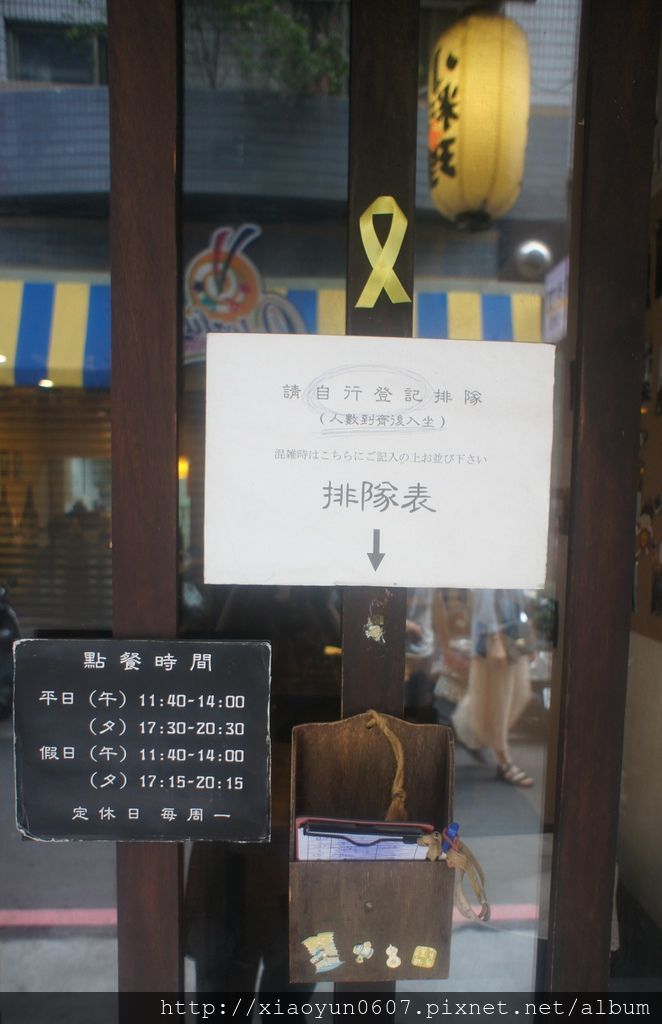 請自行登記排隊
(人數到齊後入坐)
混雑時はこちらにご記入の上お並び下さい
排隊表
點餐時間
平日(午)11:40-14:00
(夕)17:30-20:30
假日(午)11:40-14:00
(夕)17:15-20:15
定休日 每周一
http://xiaoyun0607.pixnet.net/album